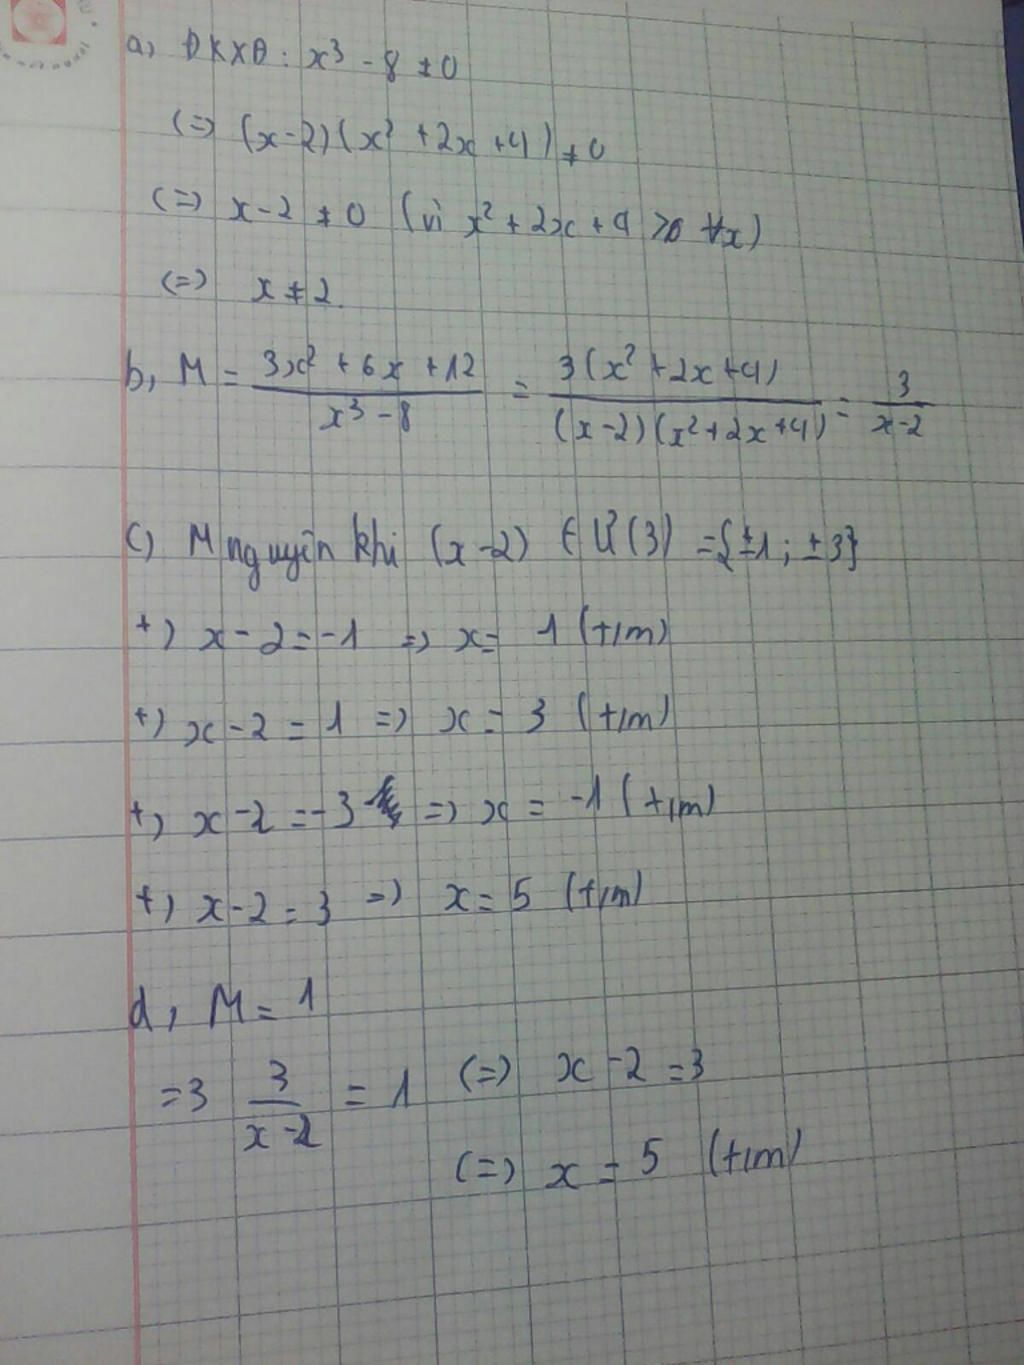 a) ĐKXĐ: x³ - 8 ≠ 0
(=) (x-2)(x² + 2x + 4) ≠ 0
(=) x-2 ≠ 0 (vì x² + 2x + 4 > 0 ∀x)
(=) x ≠ 2.
b, M = (3x² + 6x + 12)/(x³ - 8) = 3(x² + 2x + 4)/((x-2)(x² + 2x + 4)) = 3/(x-2)
c) M nguyên khi (x-2) ∈ Ư(3) = {±1; ±3}
+) x - 2 = -1 => x = 1 (t/m)
+) x - 2 = 1 => x = 3 (t/m)
+) x - 2 = -3 => x = -1 (t/m)
+) x - 2 = 3 => x = 5 (t/m)
d, M = 1
=> 3/(x-2) = 1 (=) x - 2 = 3
(=) x = 5 (t/m)